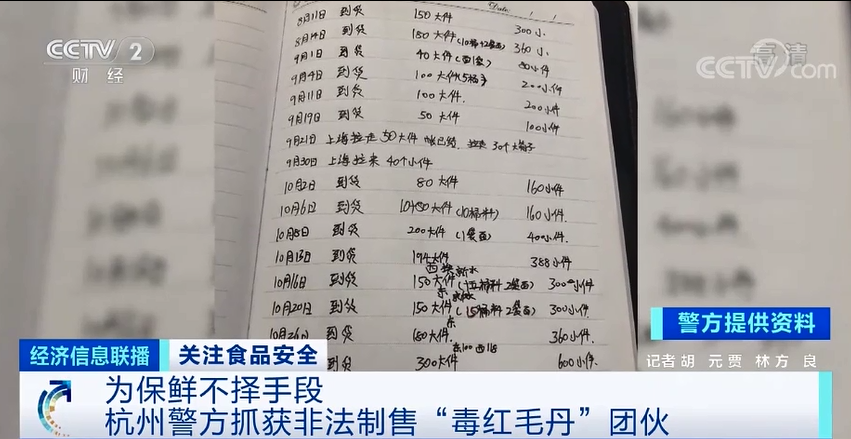 CCTV 2
财经
CCTV.com
高清
Date
8月11日 到货 150大件 300小
8月14日 到货 180大件 360小
9月1日 到货 40大件 80小件
9月4日 到货 100大件 200小件
9月11日 到货 100大件. 200小件
9月19日 到货 50大件 100小件
9月21日 上海拉走50大件 帐已结, 30个大
9月30日 上海拉来 40个小件
10月2日 到货 80大件 160小件
10月6日 到货 大件 160小件.
10月8日 到货 200大件 400小件.
10月13日 到货 194大件 388小件
10月16日 到货 150大件 300小件
10月20日 到货 150大件 300小件.
10月26日 到货 180大件 360小件.
到货 300大件 600小件.
警方提供资料
记者 胡 元 贾 林 方 良
经济信息联播 关注食品安全
为保鲜不择手段
杭州警方抓获非法制售“毒红毛丹”团伙